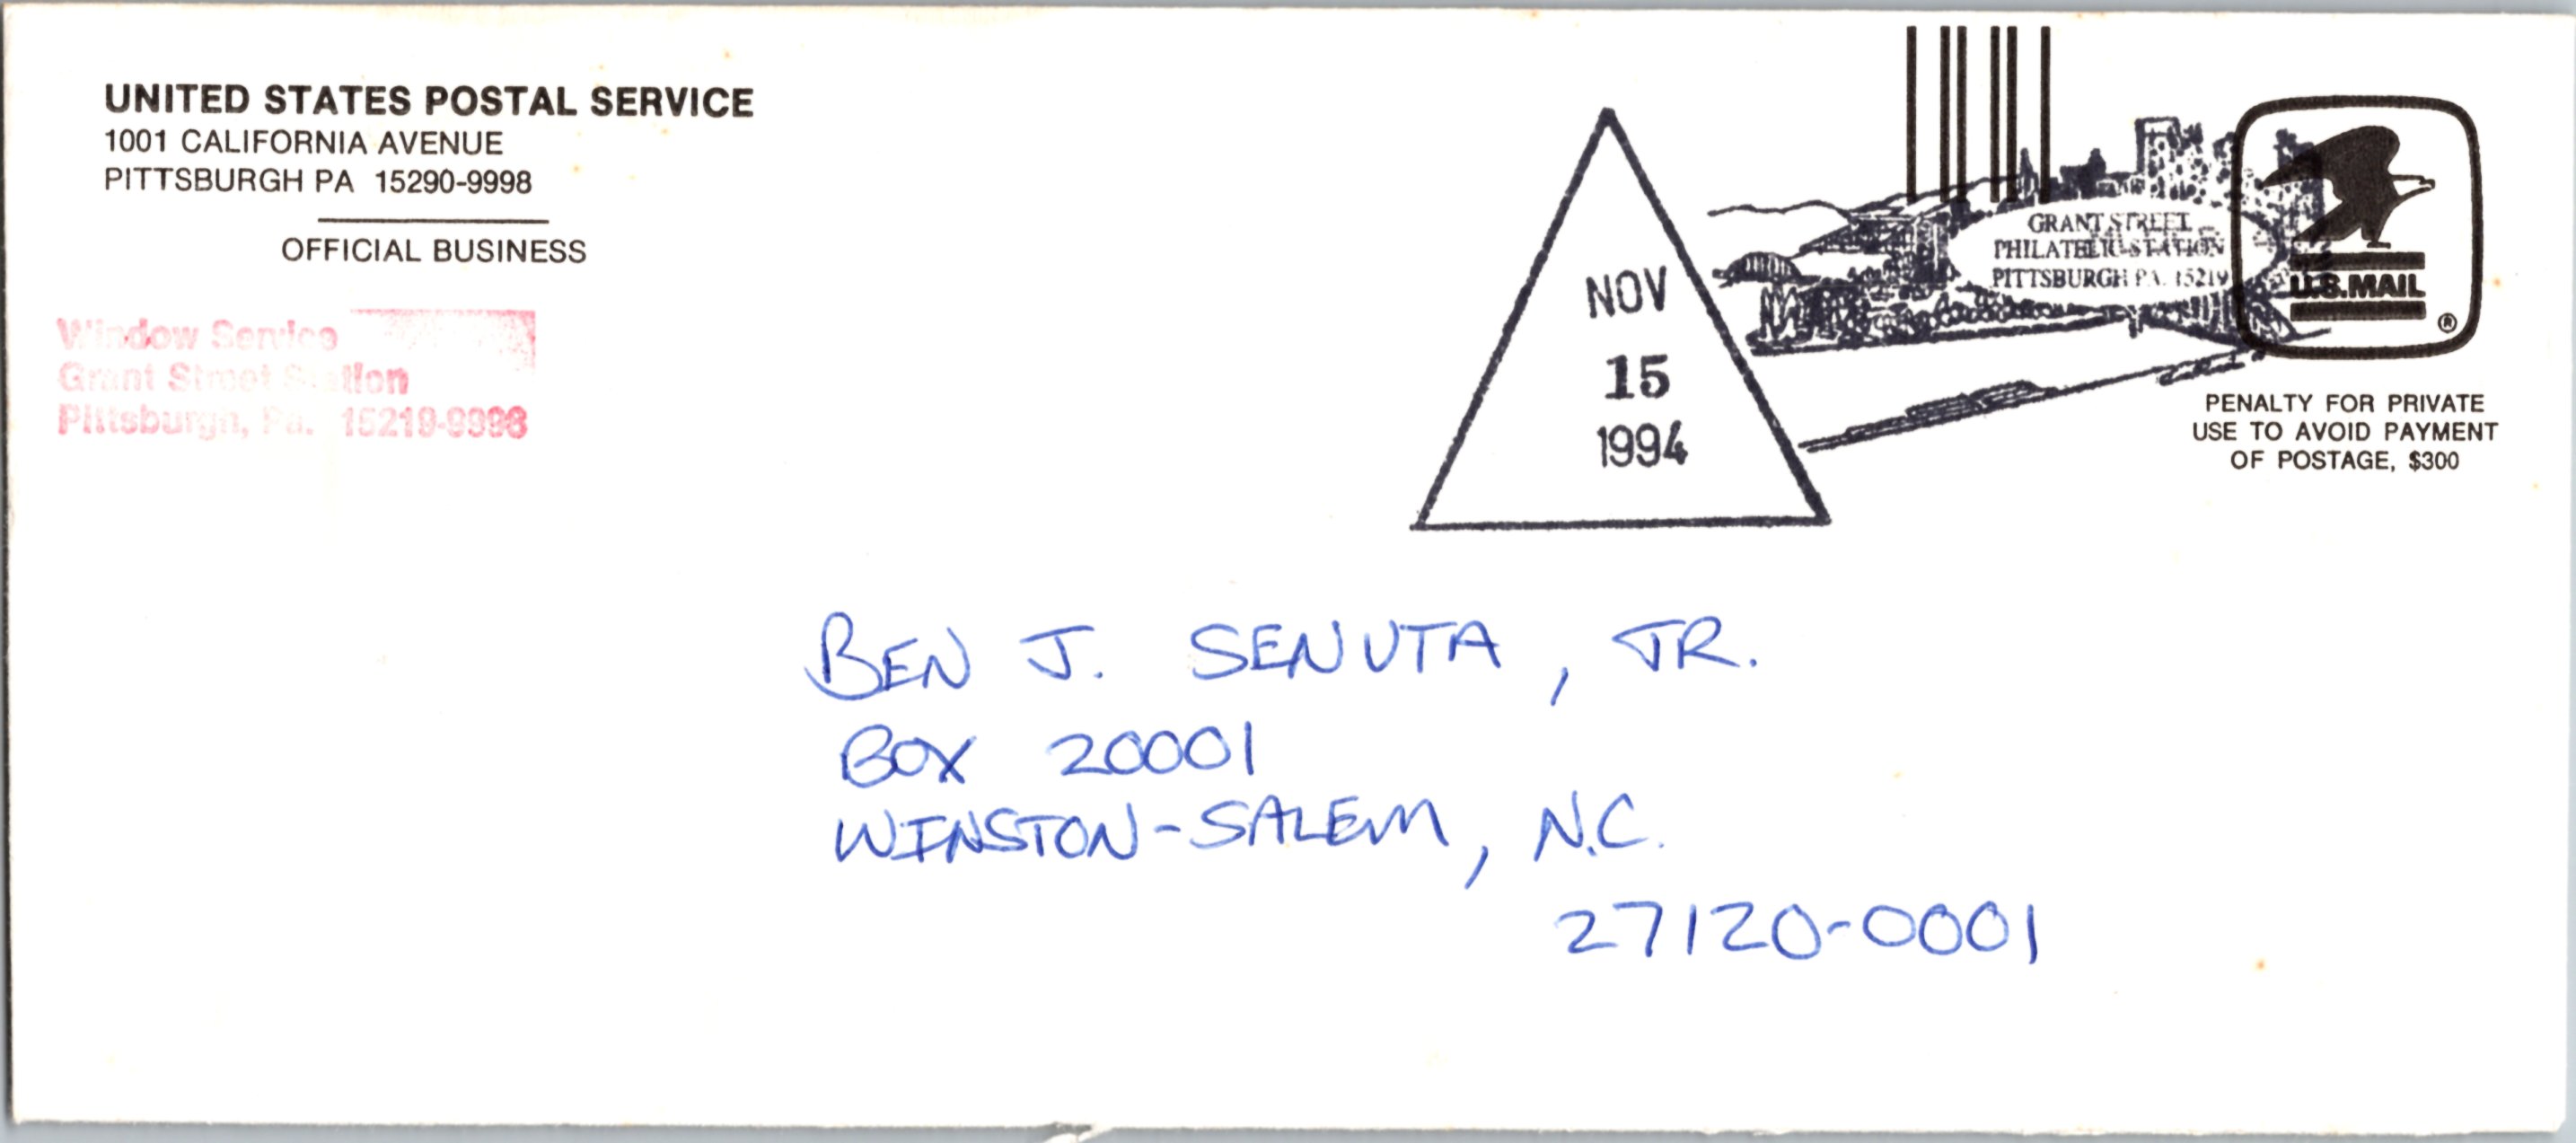 UNITED STATES POSTAL SERVICE
1001 CALIFORNIA AVENUE
PITTSBURGH PA 15290-9998
OFFICIAL BUSINESS
Window Service
Grant Street Station
Pittsburgh, Pa. 15219-9998
NOV
15
1994
GRANT STREET
PHILATELIC STATION
PITTSBURGH PA. 15219
U.S.MAIL
®
PENALTY FOR PRIVATE
USE TO AVOID PAYMENT
OF POSTAGE, $300
BEN J. SENUTA, JR.
BOX 20001
WINSTON-SALEM, N.C.
27120-0001